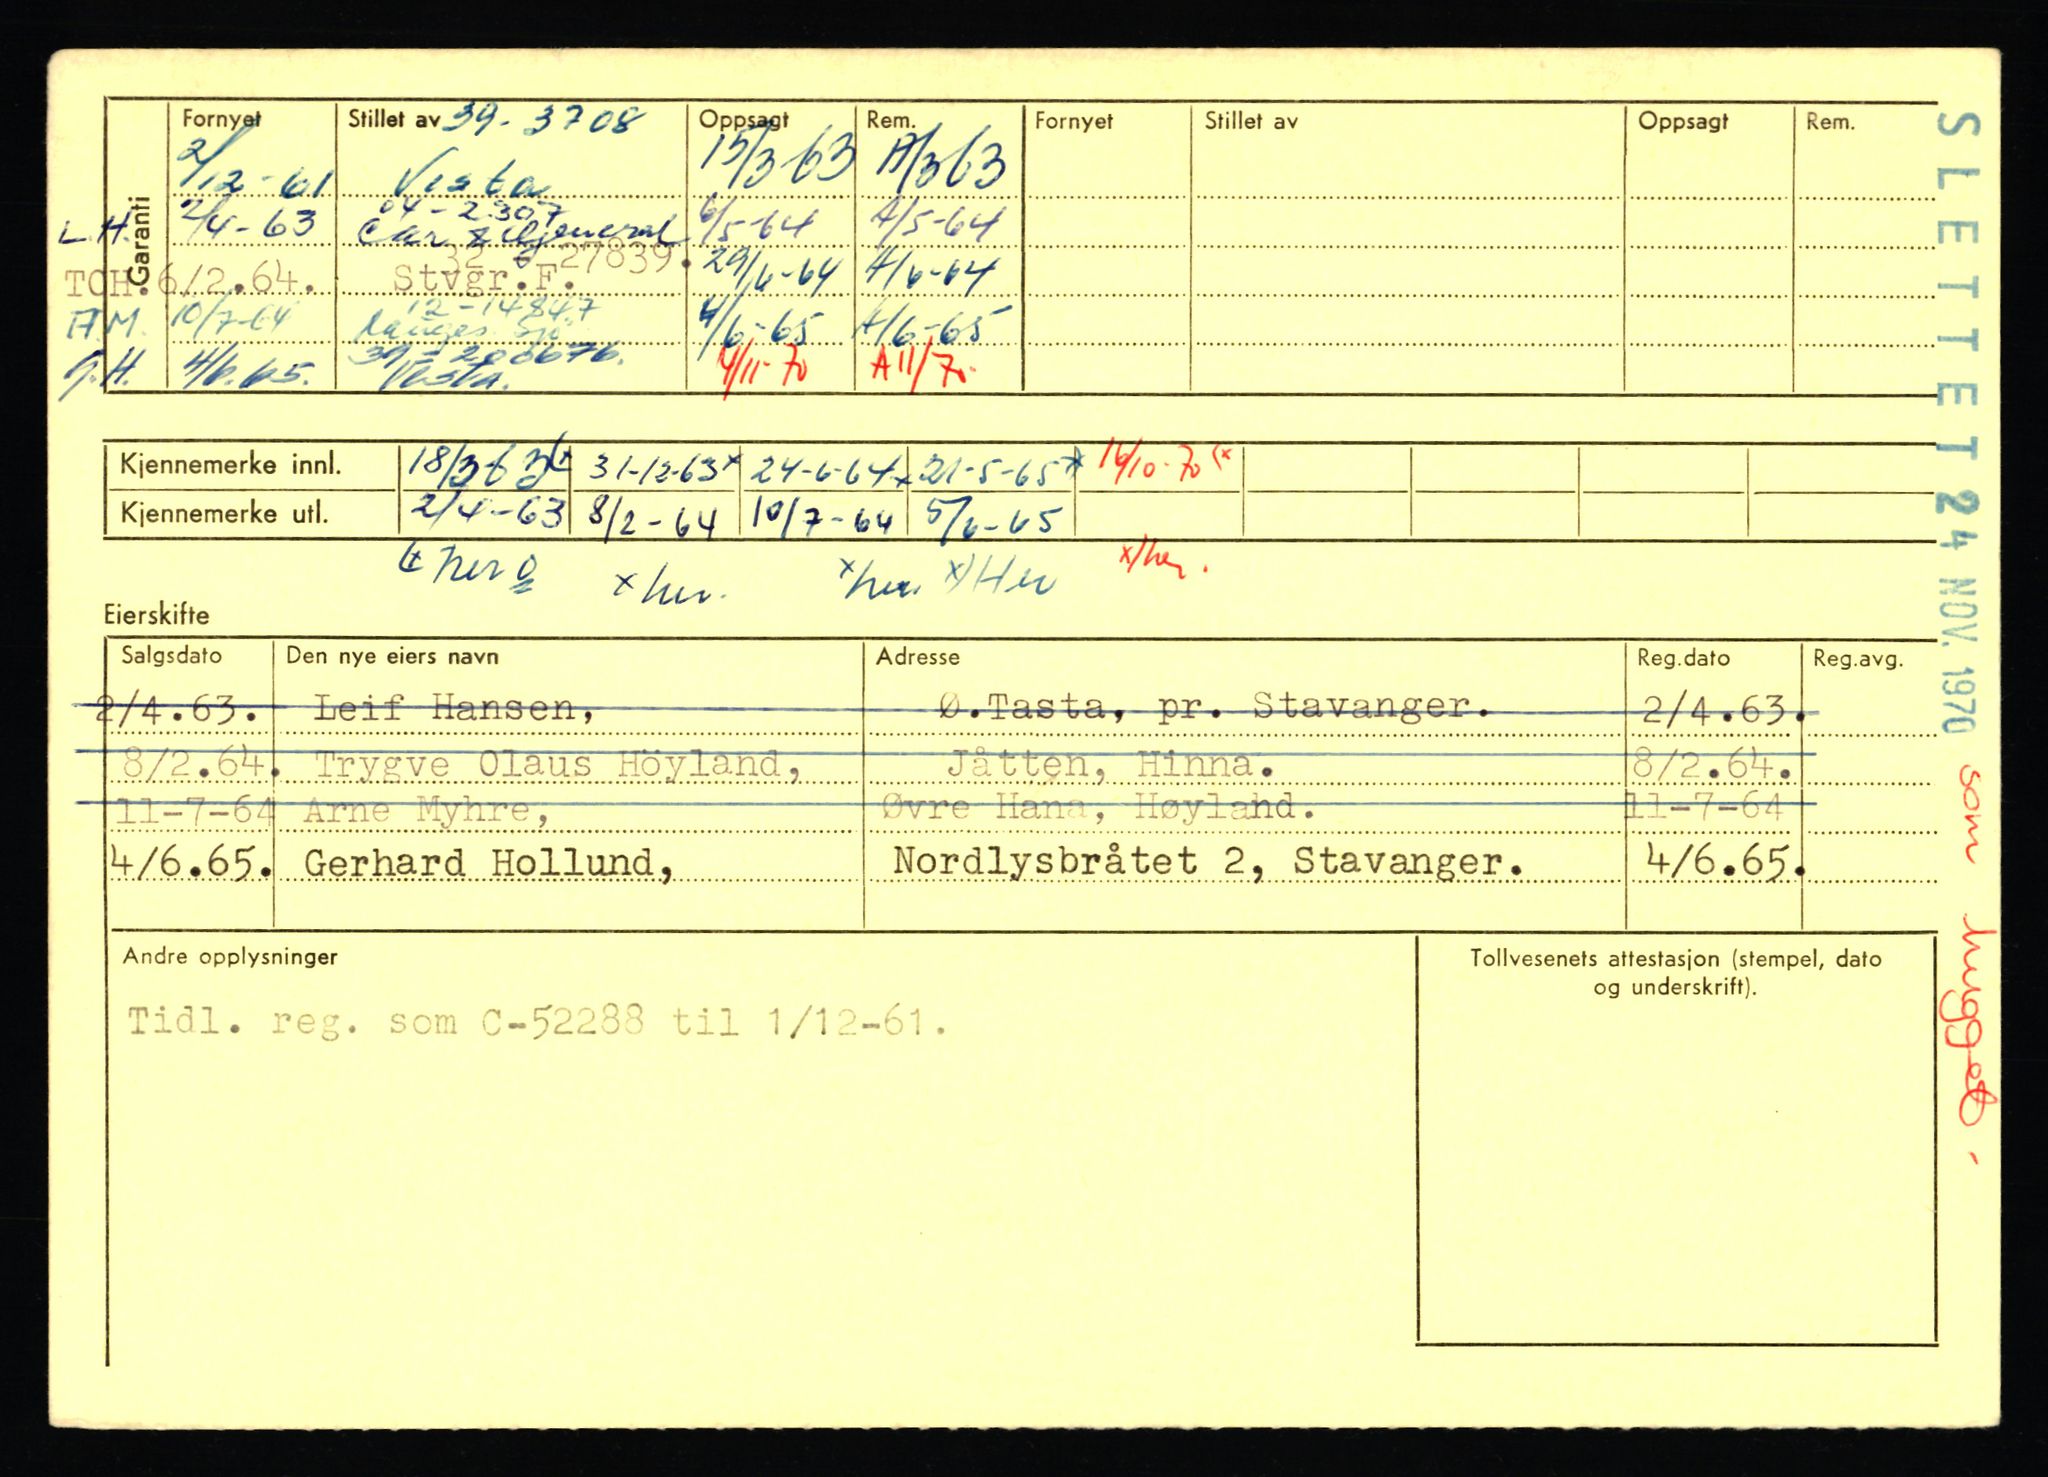 Garanti
Fornyet Stillet av 39-3708 Oppsagt Rem. Fornyet Stillet av Oppsagt Rem.
2/12-61 Vesta 15/3-63 A/3 63
04-2307
L.H. 2/4-63 6/5-64 A/5-64
32 27839.
TOH. 6/2.64. Stvgr.F. 29/6-64 A/6-64
12-14847
A.M. 10/7-64 4/6-65 A/6-65
39-200676.
G.H. 4/6.65. Vesta. 4/11-70 A 11/70.
Kjennemerke innl. 18/3-63 (x 31-12-63 x 24-6-64 x 21-5-65 x) 16/10-70 (x
Kjennemerke utl. 2/4-63 8/2-64 10/7-64 5/6-65
(x her x her. x her. x) Her x) her.
Eierskifte
Salgsdato Den nye eiers navn Adresse Reg.dato Reg.avg.
2/4.63. Leif Hansen, Ø.Tasta, pr. Stavanger. 2/4.63.
8/2.64. Trygve Olaus Höyland, Jåtten, Hinna. 8/2.64.
11-7-64 Arne Myhre, Øvre Hana, Høyland. 11-7-64
4/6.65. Gerhard Hollund, Nordlysbråtet 2, Stavanger. 4/6.65.
Andre opplysninger
Tidl. reg. som C-52288 til 1/12-61.
Tollvesenets attestasjon (stempel, dato
og underskrift).
SLETTET 24 NOV. 1970 som hugget.